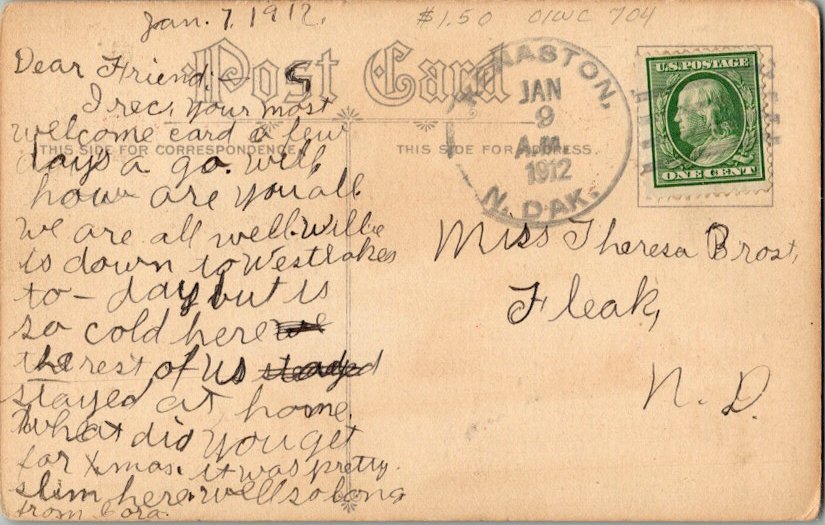 Jan. 7, 1912.
$1.50 OIWC 704
Post Card
THIS SIDE FOR CORRESPONDENCE
THIS SIDE FOR ADDRESS.
Dear Friend:—
I recs your most
welcome card a few
days a go. well
how are you all
we are all well. Willie
is down to Westlakes
to-day but is
so cold here
the rest of us
stayed at home.
What did you get
for Xmas. it was pretty
slim here. well so long
from Cora.
NASTON,
JAN
9
A.M.
1912
N. DAK.
U.S. POSTAGE
ONE CENT
Miss Theresa Brost,
Fleak,
N. D.